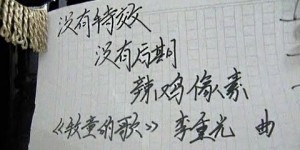 没有特效
没有后期
辣鸡像素
《牧童的歌》 李重光 曲